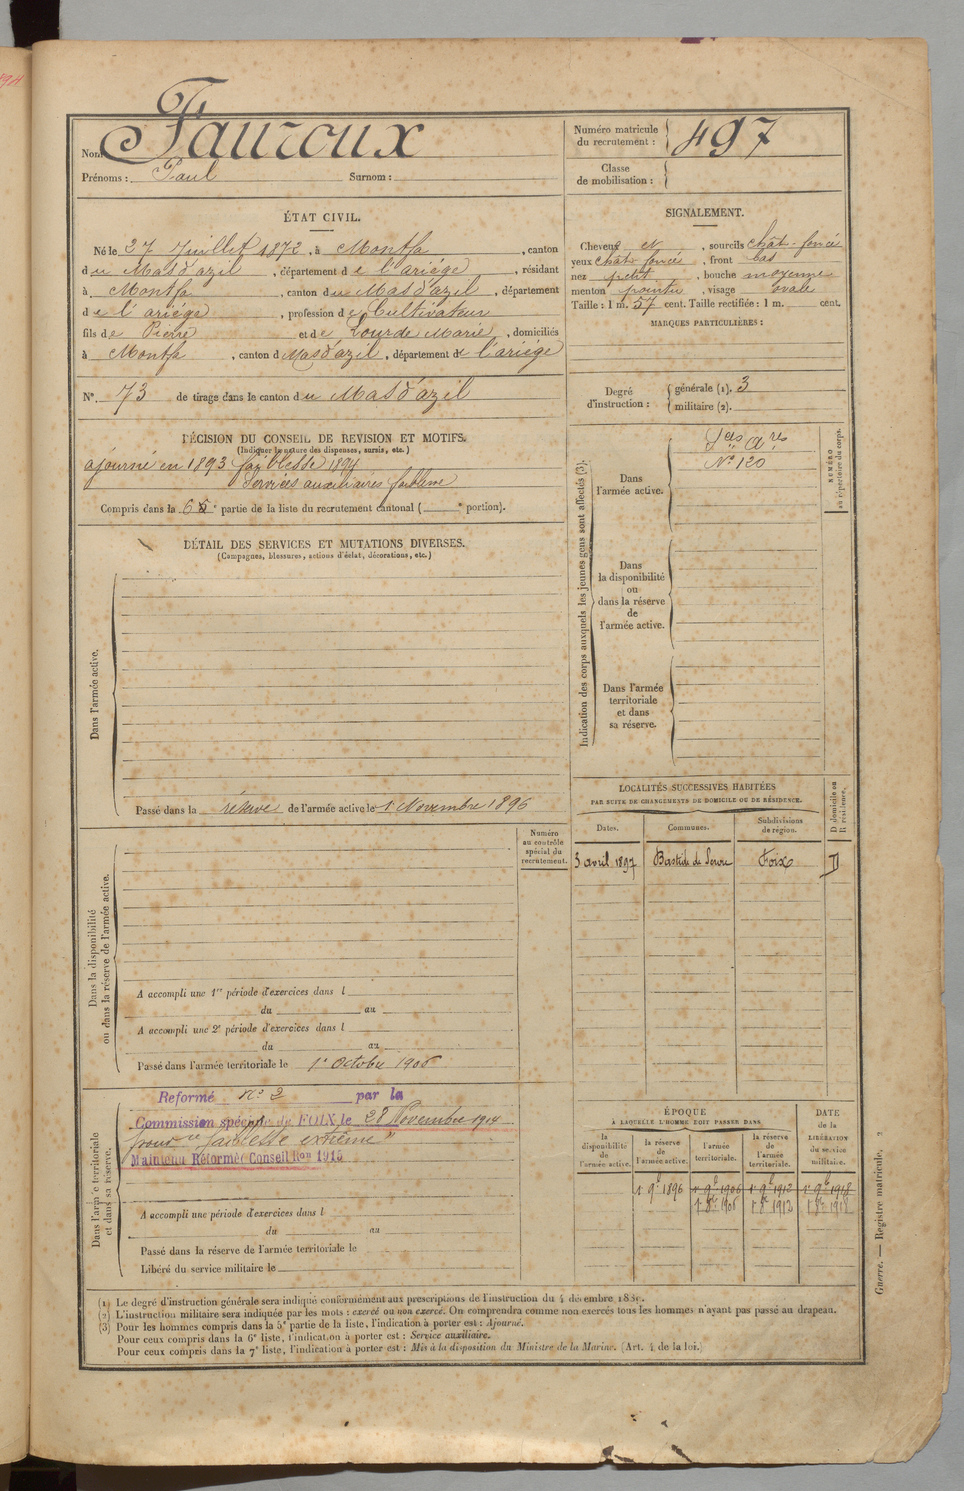 Nom: Fauroux
Prénoms: Paul Surnom:
Numéro matricule du recrutement: 497
Classe de mobilisation:
ÉTAT CIVIL.
Né le 27 Juillet 1872, à Montfa, canton
du Masd'azil, département de l'ariége, résidant
à Montfa, canton du Masd'azil, département
de l'ariége, profession de Cultivateur
fils de Pierre et de Lourde Marie, domiciliés
à Montfa, canton d Masd'azil, département de l'ariége
N° 73 de tirage dans le canton du Masd'azil
DÉCISION DU CONSEIL DE REVISION ET MOTIFS.
(Indiquer la nature des dispenses, sursis, etc.)
ajourné en 1893 faiblesse 1894
Services auxiliaires faiblesse
Compris dans la 6e partie de la liste du recrutement cantonal ( e portion).
SIGNALEMENT.
Cheveux et, sourcils chât-foncé
yeux chât foncé, front bas
nez petit, bouche moyenne
menton pointu, visage ovale
Taille: 1 m. 57 cent. Taille rectifiée: 1 m. cent.
MARQUES PARTICULIÈRES:
Degré d'instruction: générale (1). 3
militaire (2).
DÉTAIL DES SERVICES ET MUTATIONS DIVERSES.
(Campagnes, blessures, actions d'éclat, décorations, etc.)
Dans l'armée active.
Passé dans la réserve de l'armée active le 1 Novembre 1896
Indication des corps auxquels les jeunes gens sont affectés (3).
NUMÉRO au répertoire du corps.
Dans l'armée active.
Ses Ares
N° 120
Dans la disponibilité ou dans la réserve de l'armée active.
Dans l'armée territoriale et dans sa réserve.
LOCALITÉS SUCCESSIVES HABITÉES
PAR SUITE DE CHANGEMENTS DE DOMICILE OU DE RÉSIDENCE.
D domicile ou R résidence.
Dates. Communes. Subdivisions de région.
3 avril 1897 Bastide de Serou Foix D
Numéro au contrôle spécial du recrutement.
Dans la disponibilité ou dans la réserve de l'armée active.
A accompli une 1re période d'exercices dans l
du au
A accompli une 2e période d'exercices dans l
du au
Passé dans l'armée territoriale le 1er Octobre 1906
Dans l'armée territoriale et dans sa réserve.
Reformé n° 2 par la
Commission spéciale de FOIX le 28 Novembre 1914
pour "faiblesse extrême"
Maintenu Réformé Conseil Ron 1915
A accompli une période d'exercices dans l
du au
Passé dans la réserve de l'armée territoriale le
Libéré du service militaire le
ÉPOQUE
À LAQUELLE L'HOMME DOIT PASSER DANS
DATE de la LIBÉRATION du service militaire.
la disponibilité de l'armée active.
la réserve de l'armée active.
l'armée territoriale.
la réserve de l'armée territoriale.
1er 9b 1896 1er 9b 1906 1er 9b 1912 1er 9b 1918
1er 8bre 1906 1er 8bre 1912 1er 8bre 1918
(1) Le degré d'instruction générale sera indiqué conformément aux prescriptions de l'instruction du 4 décembre 1889.
(2) L'instruction militaire sera indiquée par les mots: exercé ou non exercé. On comprendra comme non exercés tous les hommes n'ayant pas passé au drapeau.
(3) Pour les hommes compris dans la 5e partie de la liste, l'indication à porter est: Ajourné.
Pour ceux compris dans la 6e liste, l'indication à porter est: Service auxiliaire.
Pour ceux compris dans la 7e liste, l'indication à porter est: Mis à la disposition du Ministre de la Marine. (Art. 4 de la loi.)
Guerre. — Registre matricule. 2